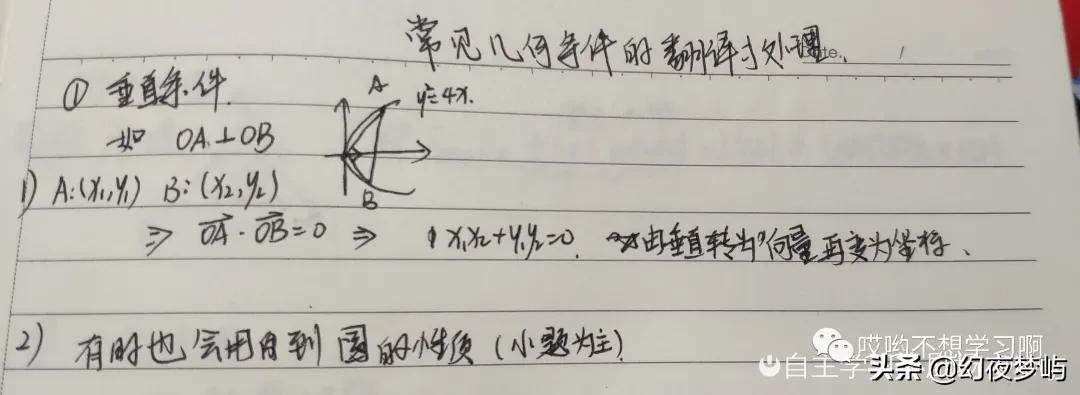 常见几何条件的翻译与处理
Date.
① 垂直条件.
A
y²=4x.
如 OA⊥OB
B
1) A:(x₁,y₁) B:(x₂,y₂)
⇒ OA·OB=0 ⇒ x₁x₂+y₁y₂=0. 由垂直转为向量再变为坐标、
2) 有时也会用到圆的性质(小题为主).
哎哟不想学习啊
自主学
头条@幻夜梦屿